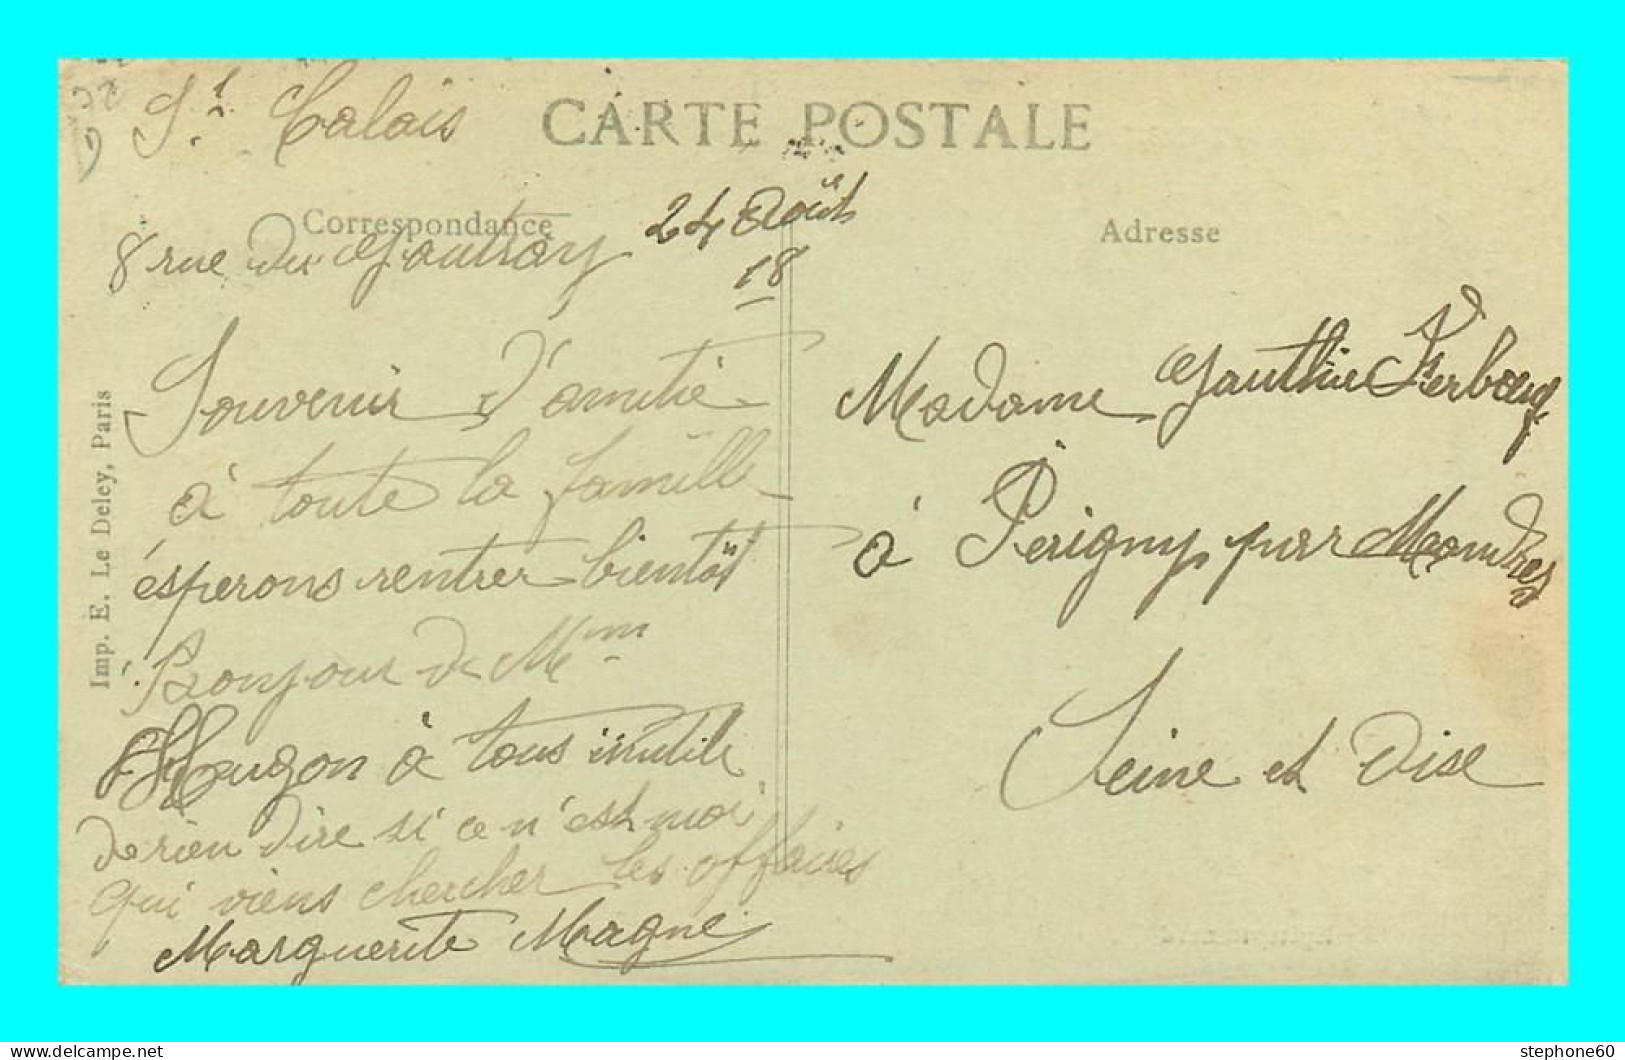 St Calais
CARTE POSTALE
Correspondance
8 rue du 24 Août
18
Souvenir d'amitié
à toute la famille
éspérons rentrer bientôt
Bonjour de Mme
Haugon à tous inutile
de rien dire si ce n'est moi
qui viens chercher les affaires
Marguerite Magne
Imp. E. Le Deley, Paris
Adresse
Madame Gauthier
à Périgny par Mandres
Seine et Oise
stephone60